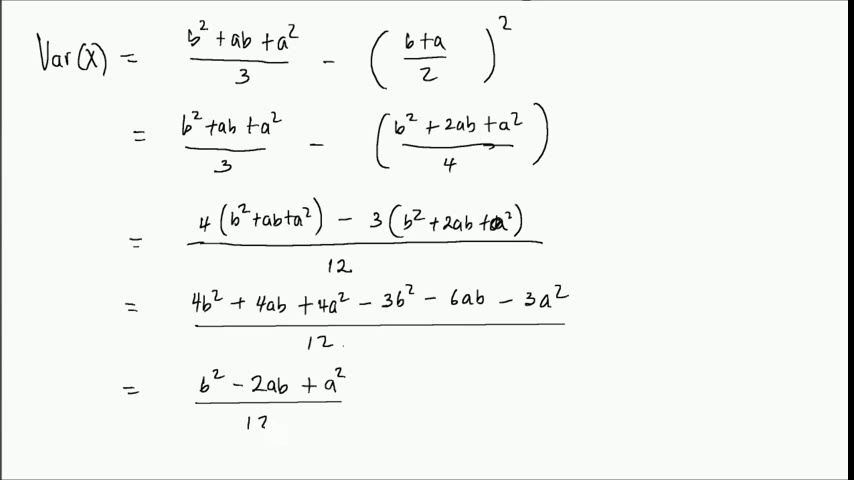 Var(X) = (b² + ab + a²)/3 − ((b+a)/2)²
= (b² + ab + a²)/3 − ((b² + 2ab + a²)/4)
= (4(b² + ab + a²) − 3(b² + 2ab + a²))/12
= (4b² + 4ab + 4a² − 3b² − 6ab − 3a²)/12
= (b² − 2ab + a²)/12